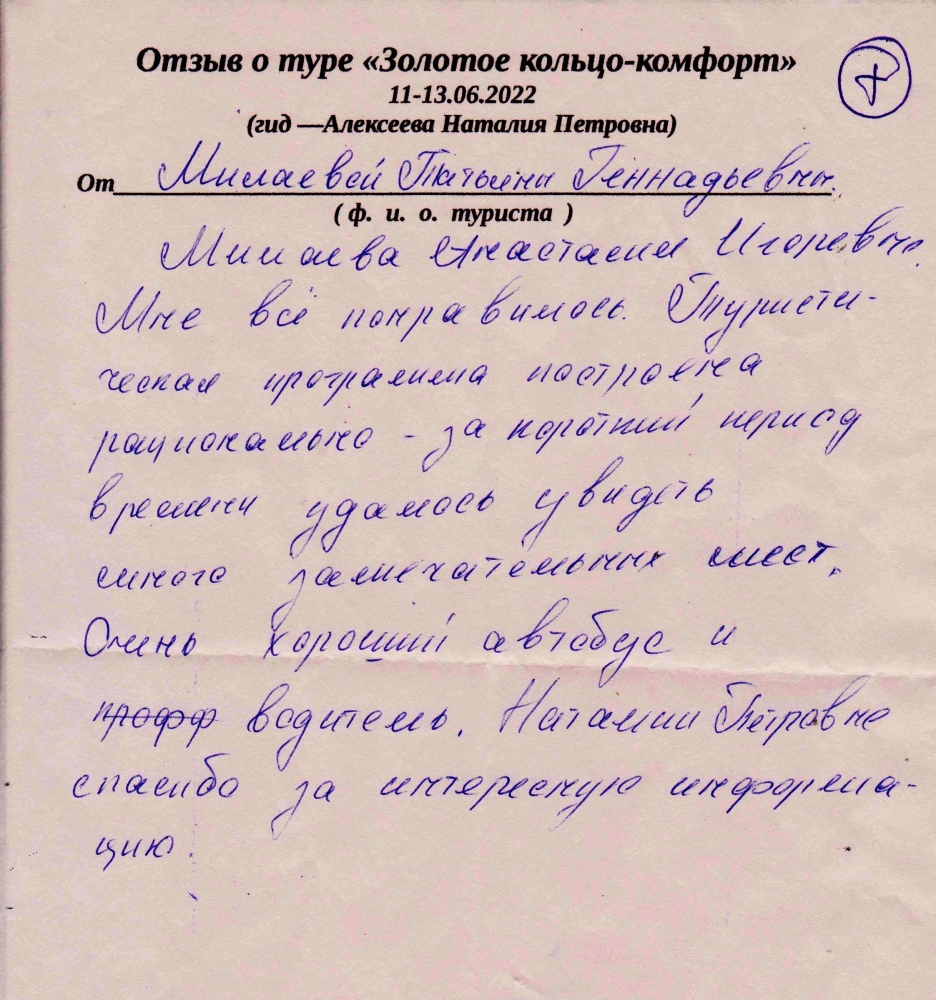 Отзыв о туре «Золотое кольцо-комфорт»
11-13.06.2022
(гид —Алексеева Наталия Петровна)
От Милаевой Татьяны Геннадьевны.
( ф. и. о. туриста )
Милаева Анастасия Игоревна.
Мне всё понравилось. Туристи-
ческая программа построена
рационально - за короткий период
времени удалось увидеть
много замечательных мест.
Очень хороший автобус и
профф водитель. Наталии Петровне
спасибо за интересную информа-
цию.